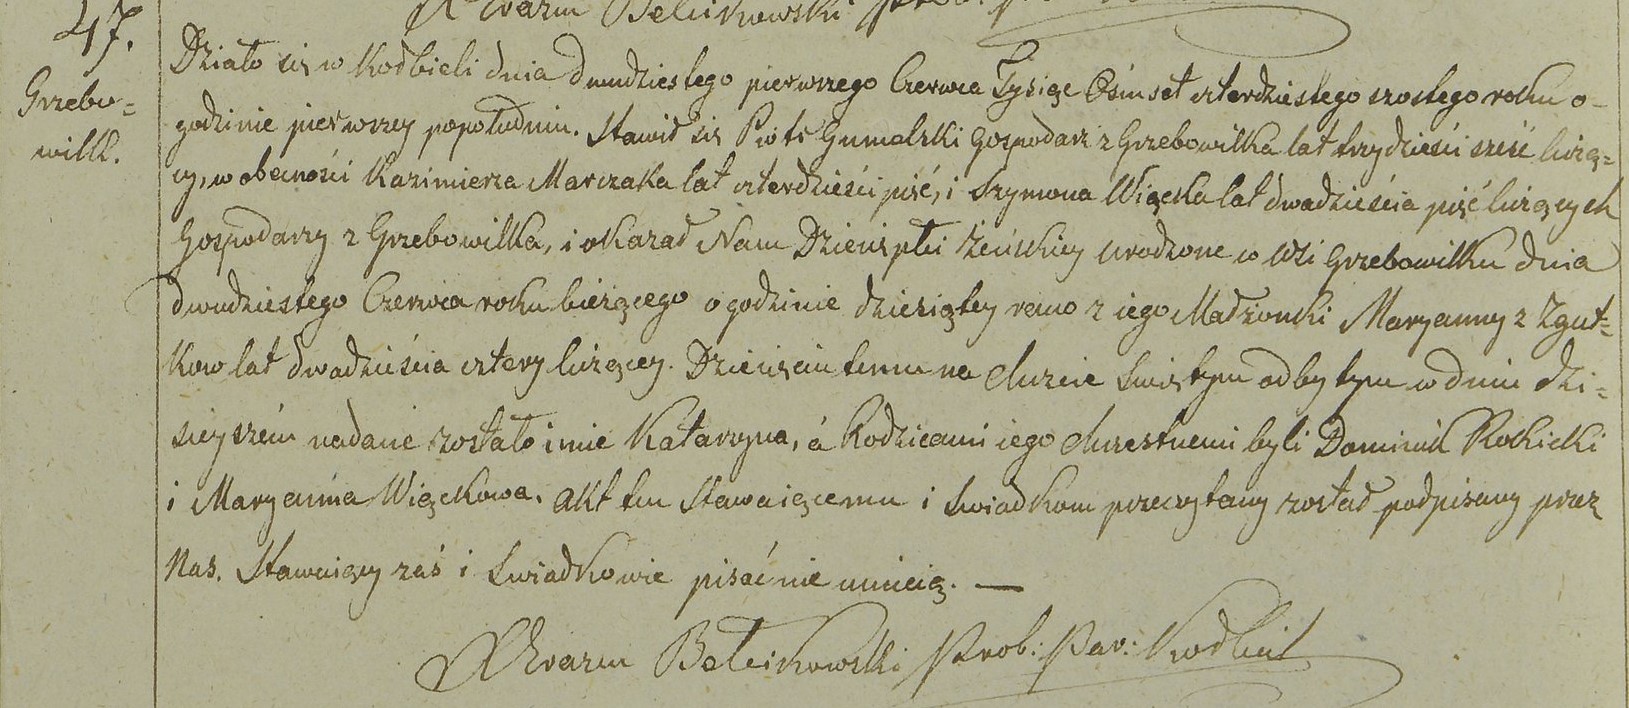 47.
Grzebo=
wilk.
Działo się w Kołbieli dnia dwudziestego pierwszego Czerwca Tysiąc Ośmset czterdziestego szostego roku o
godzinie pierwszey popołudniu. Stawił się Piotr Gumolski Gospodarz z Grzebowilka lat trzydzieści sześć liczą=
cy, w obecności Kazimierza Marczaka lat czterdzieści pięć, i Szymona Więcka lat dwadzieścia pięć liczących
Gospodarzy z Grzebowilka, i okazał Nam Dziecię płci żeńskiey urodzone w Wsi Grzebowilku dnia
dwudziestego Czerwca roku bieżącego o godzinie dziesiątey rano z iego Małżonki Maryanny z Zgut=
kow lat dwadzieścia cztery liczącey. Dziecięciu temu na Chrzcie Świętym odbytym w dniu dzi=
sieyszém nadane zostało imie Katarzyna, á Rodzicami iego Chrzestnemi byli Dominik Rokicki
i Maryanna Więckowa. Akt ten Stawaiącemu i Świadkom przeczytany został podpisany przez
Nas. Stawaiący zaś i Świadkowie pisać nie umieią. —
Bełcikowski Prob: Par: Kołbiel